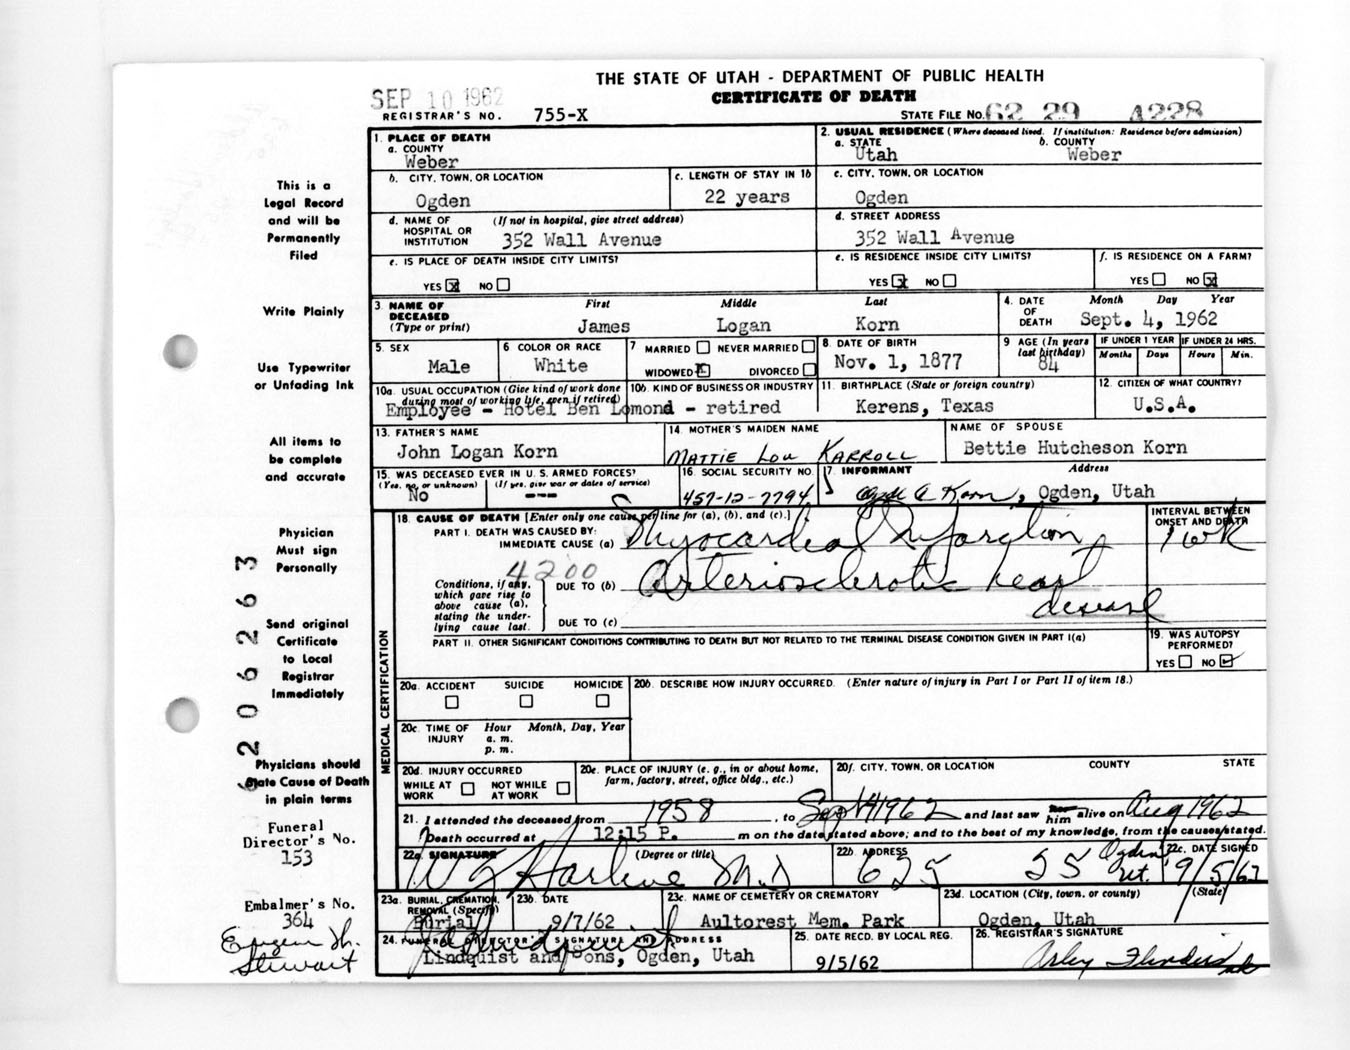 THE STATE OF UTAH - DEPARTMENT OF PUBLIC HEALTH
CERTIFICATE OF DEATH
SEP 10 1962
REGISTRAR'S NO. 755-X
STATE FILE NO. 62 29 4228
This is a
Legal Record
and will be
Permanently
Filed
Write Plainly
Use Typewriter
or Unfading Ink
All items to
be complete
and accurate
Physician
Must sign
Personally
Send original
Certificate
to Local
Registrar
Immediately
Physicians should
State Cause of Death
in plain terms
Funeral
Director's No.
153
Embalmer's No.
364
Eugene H.
Stewart
206263
1. PLACE OF DEATH
a. COUNTY
Weber
2. USUAL RESIDENCE (Where deceased lived. If institution: Residence before admission)
a. STATE b. COUNTY
Utah Weber
b. CITY, TOWN, OR LOCATION
Ogden
c. LENGTH OF STAY IN 1b
22 years
c. CITY, TOWN, OR LOCATION
Ogden
d. NAME OF (If not in hospital, give street address)
HOSPITAL OR
INSTITUTION 352 Wall Avenue
d. STREET ADDRESS
352 Wall Avenue
e. IS PLACE OF DEATH INSIDE CITY LIMITS?
YES X NO
e. IS RESIDENCE INSIDE CITY LIMITS?
YES X NO
f. IS RESIDENCE ON A FARM?
YES NO X
3. NAME OF DECEASED (Type or print)
First Middle Last
James Logan Korn
4. DATE OF DEATH
Month Day Year
Sept. 4, 1962
5. SEX
Male
6 COLOR OR RACE
White
7 MARRIED NEVER MARRIED
WIDOWED X DIVORCED
8. DATE OF BIRTH
Nov. 1, 1877
9 AGE (In years last birthday)
84
IF UNDER 1 YEAR IF UNDER 24 HRS.
Months Days Hours Min.
10a. USUAL OCCUPATION (Give kind of work done during most of working life, even if retired)
10b. KIND OF BUSINESS OR INDUSTRY
Employee - Hotel Ben Lomond - retired
11. BIRTHPLACE (State or foreign country)
Kerens, Texas
12. CITIZEN OF WHAT COUNTRY?
U.S.A.
13. FATHER'S NAME
John Logan Korn
14. MOTHER'S MAIDEN NAME
MATTIE LOU KARROLL
NAME OF SPOUSE
Bettie Hutcheson Korn
15. WAS DECEASED EVER IN U. S. ARMED FORCES?
(Yes, no, or unknown) (If yes, give war or dates of service)
No ---
16. SOCIAL SECURITY NO.
457-12-7794
17. INFORMANT Address
Clyde A Korn, Ogden, Utah
MEDICAL CERTIFICATION
18. CAUSE OF DEATH [Enter only one cause per line for (a), (b), and (c).]
INTERVAL BETWEEN
ONSET AND DEATH
PART I. DEATH WAS CAUSED BY:
IMMEDIATE CAUSE (a) Myocardial Infarction 1 wk
4200
Conditions, if any, which gave rise to above cause (a), stating the underlying cause last.
DUE TO (b) Arteriosclerotic heart
disease
DUE TO (c)
PART II. OTHER SIGNIFICANT CONDITIONS CONTRIBUTING TO DEATH BUT NOT RELATED TO THE TERMINAL DISEASE CONDITION GIVEN IN PART I(a)
19. WAS AUTOPSY
PERFORMED?
YES NO
20a. ACCIDENT SUICIDE HOMICIDE
20b. DESCRIBE HOW INJURY OCCURRED. (Enter nature of injury in Part I or Part II of item 18.)
20c. TIME OF INJURY
Hour Month, Day, Year
a. m.
p. m.
20d. INJURY OCCURRED
WHILE AT WORK NOT WHILE AT WORK
20e. PLACE OF INJURY (e. g., in or about home, farm, factory, street, office bldg., etc.)
20f. CITY, TOWN, OR LOCATION COUNTY STATE
21. I attended the deceased from 1958, to Sept 4 1962 and last saw him alive on Aug 1962
Death occurred at 12:15 P. m on the date stated above; and to the best of my knowledge, from the causes stated.
22a. SIGNATURE (Degree or title)
Harline M.D
22b. ADDRESS
625 25 Ogden Ut.
22c. DATE SIGNED
9/5/62
23a. BURIAL, CREMATION, REMOVAL (Specify)
Burial
23b. DATE
9/7/62
23c. NAME OF CEMETERY OR CREMATORY
Aultorest Mem. Park
23d. LOCATION (City, town, or county) (State)
Ogden, Utah
24. FUNERAL DIRECTOR'S SIGNATURE AND ADDRESS
Lindquist and Sons, Ogden, Utah
25. DATE RECD. BY LOCAL REG.
9/5/62
26. REGISTRAR'S SIGNATURE